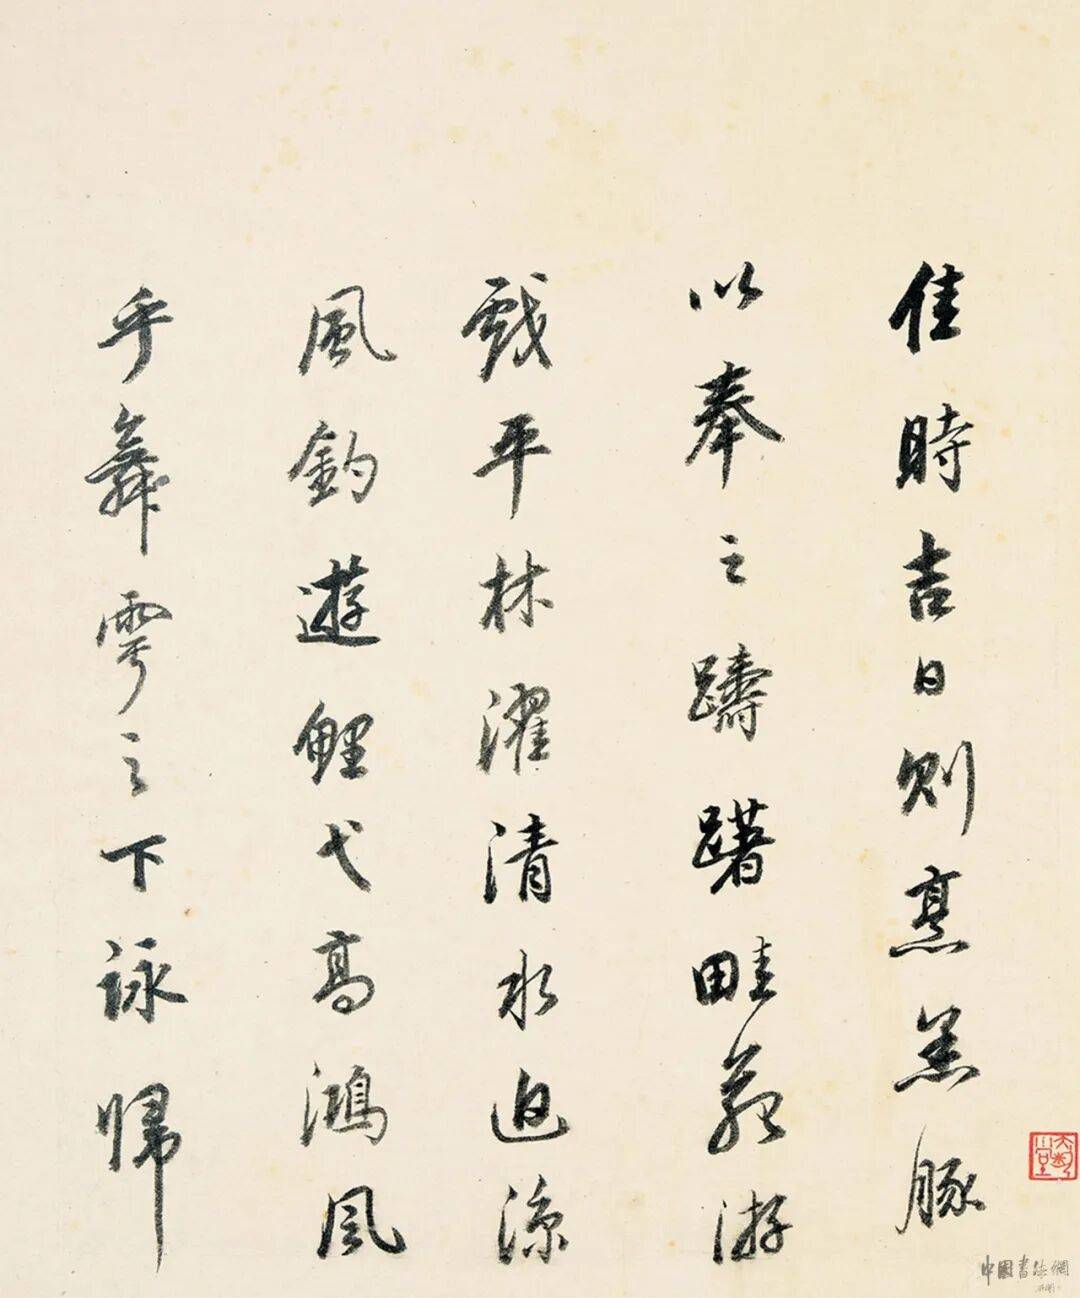 佳時吉日則烹羔豚
以奉之躊躇畦苑游
戲平林濯清水追涼
風釣遊鯉弋高鴻風
乎舞雩之下詠歸
中國書法網